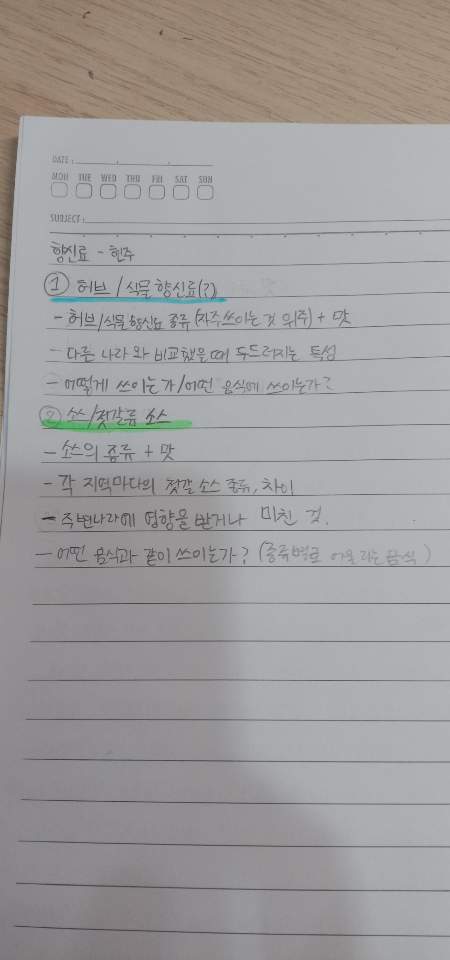 DATE :
MON TUE WED THU FRI SAT SUN
SUBJECT :
향신료 - 현주
① 허브 / 식물 향신료(?)
- 허브/식물 향신료 종류 (자주 쓰이는 것 위주) + 맛
- 다른 나라와 비교했을때 두드러지는 특성
- 어떻게 쓰이는가/어떤 음식에 쓰이는가?
② 소스/젓갈류 소스
- 소스의 종류 + 맛
- 각 지역마다의 젓갈 소스 종류, 차이
- 주변나라에 영향을 받거나 미친 것.
- 어떤 음식과 같이 쓰이는가? (종류별로 어울리는 음식)